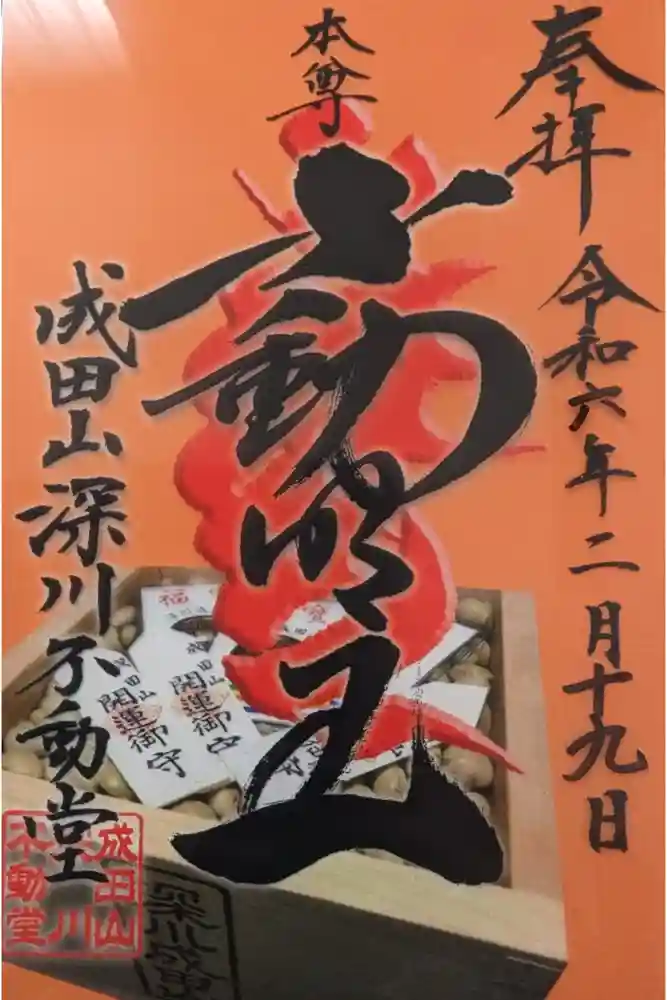 奉拝
令和六年二月十九日
本尊
不動明王
成田山深川不動堂
成田山
深川
不動堂
福
成田山
開運御守
成田山
開運御守
深川成田山